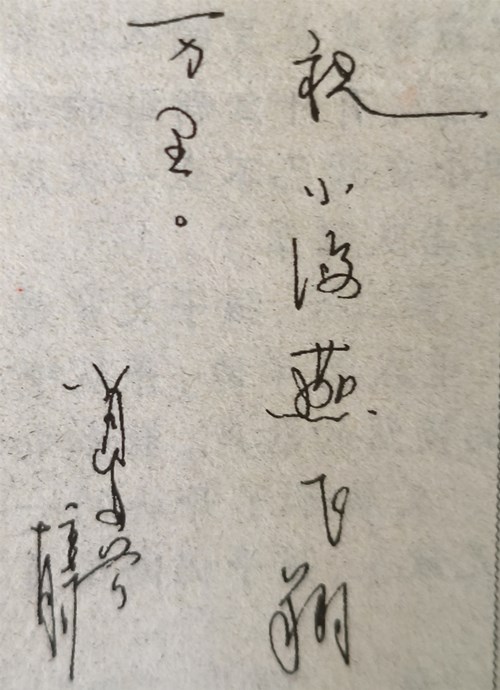 祝小海燕飞翔
万里。